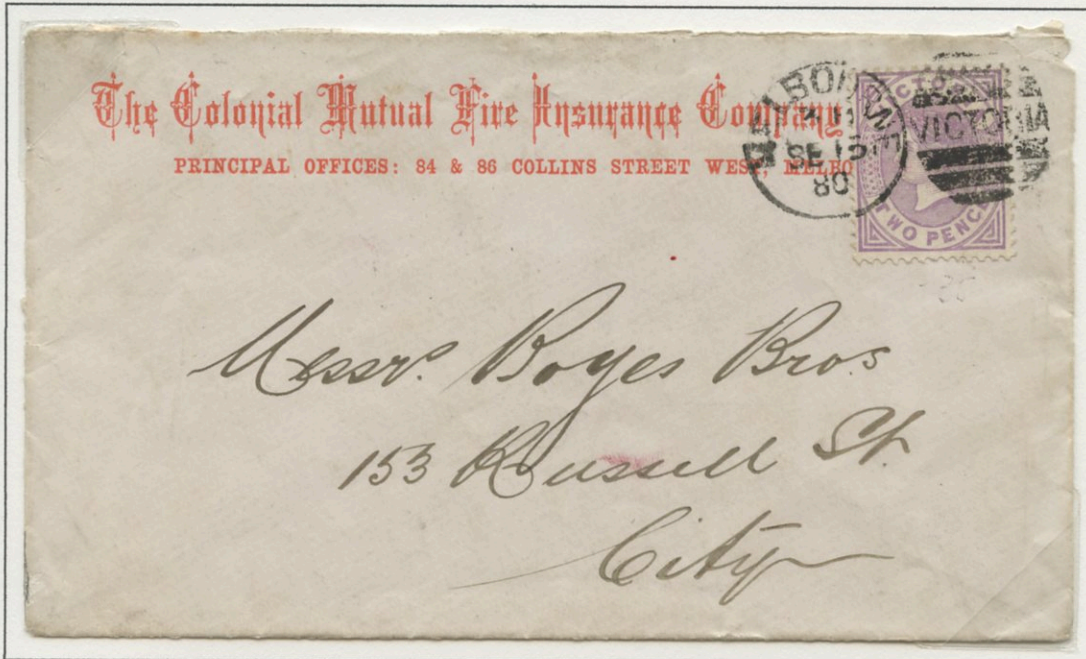 The Colonial Mutual Fire Insurance Company
PRINCIPAL OFFICES: 84 & 86 COLLINS STREET WEST, MELBO
MELBOURNE
SE 15
80
VICTORIA
TWO PENCE
Messrs. Boyes Bros
153 Russell St.
City